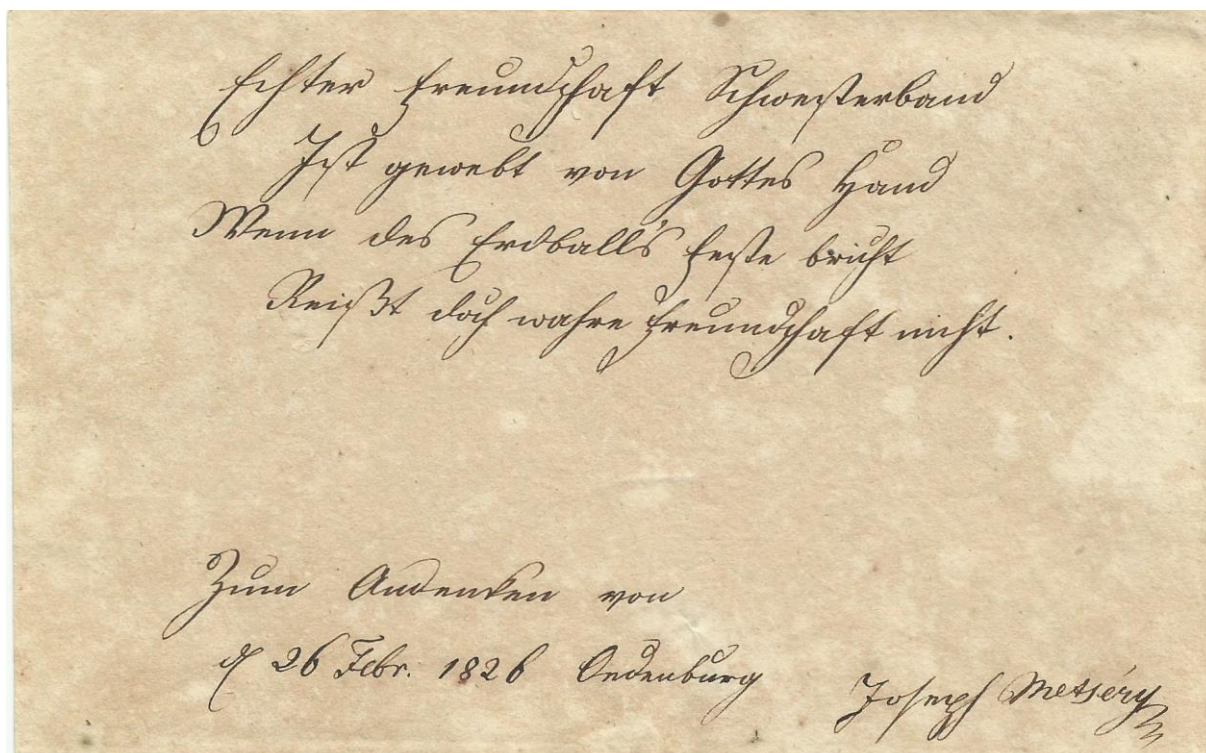 Echter Freundschaft Schwesterband
Ist gewebt von Gottes Hand
Wenn des Erdball's Feste bricht
Reißt doch wahre Freundschaft nicht.
Zum Andenken von
d 26 Febr. 1826 Oedenburg Joseph Metséry